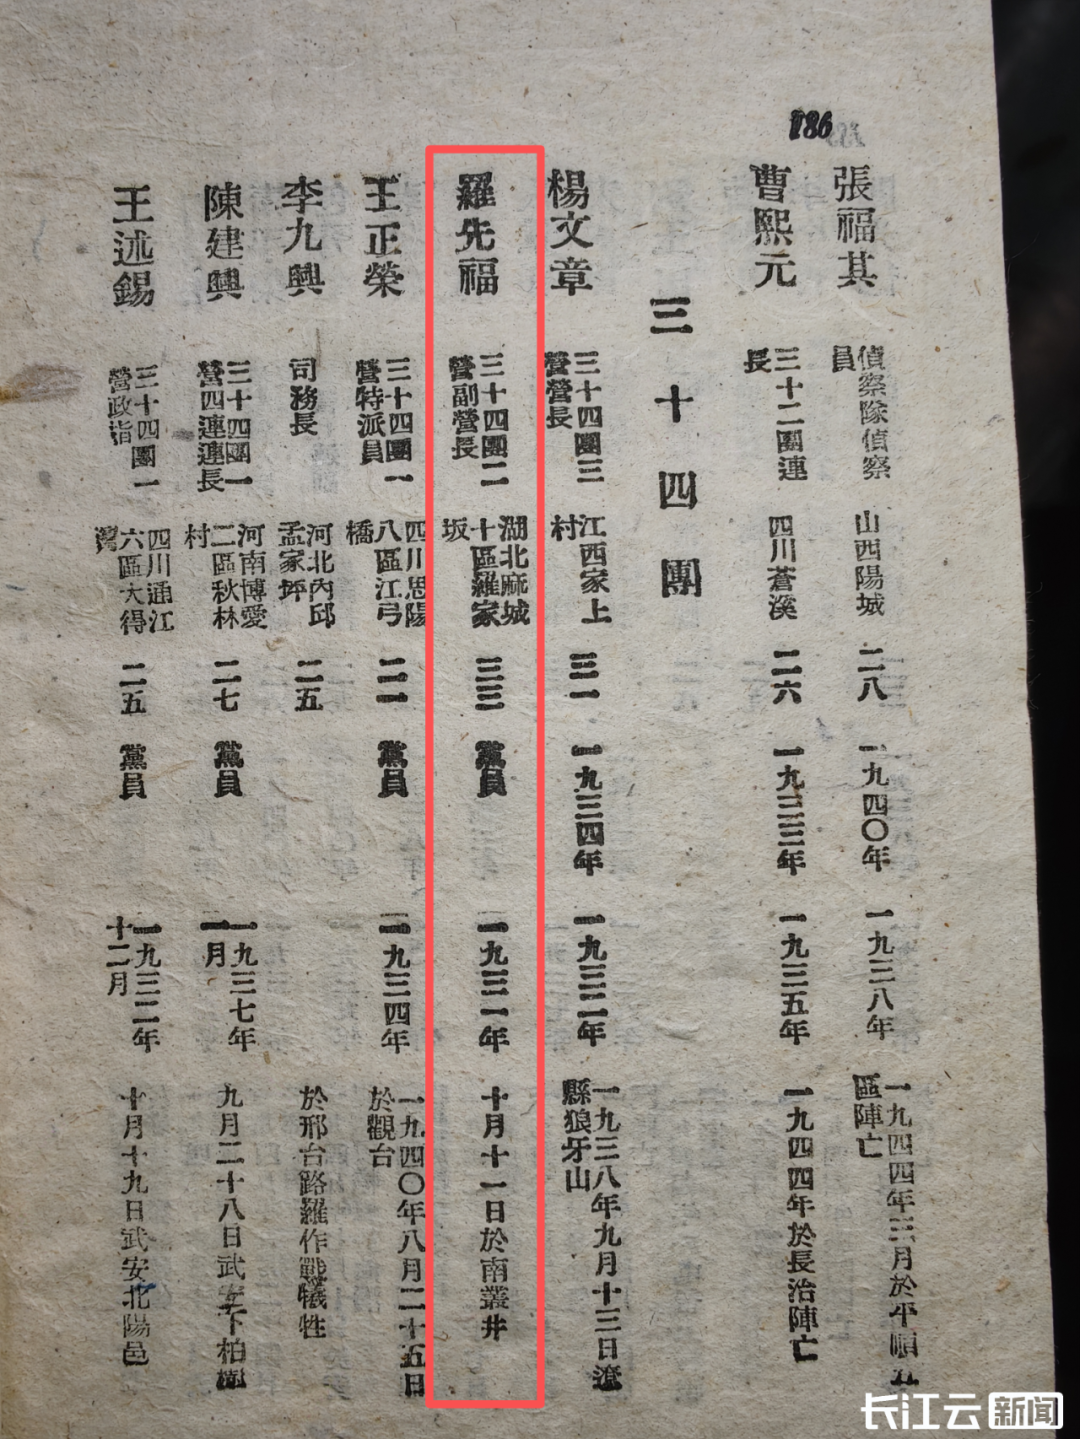 186
張福其
偵察隊偵察
員
山西陽城
二八
一九四〇年
一九三八年
一九四四年三月於平順五
區陣亡
曹熙元
三十二團連
長
四川蒼溪
二六
一九三三年
一九三五年
一九四四年於長治陣亡
三十四團
楊文章
三十四團三
營營長
江西家上
村
三一
一九三四年
一九三二年
一九三八年九月十三日遼
縣狼牙山
羅先福
三十四團二
營副營長
湖北麻城
十區羅家
坂
三三
黨員
一九三一年
十月十一日於南叢井
王正榮
三十四團一
營特派員
四川思陽
八區江弓
橋
二一
黨員
一九三四年
一九四〇年八月二十五日
於觀台
李九興
司務長
河北內邱
孟家坪
二五
於邢台路羅作戰犧牲
陳建興
三十四團一
營四連連長
河南博愛
二區秋林
村
二七
黨員
一九三七年
一月
九月二十八日武安下柏樹
王述錫
三十四團一
營政指
四川通江
六區大得
灣
二五
黨員
一九三二年
十二月
十月十九日武安北陽邑
长江云新闻